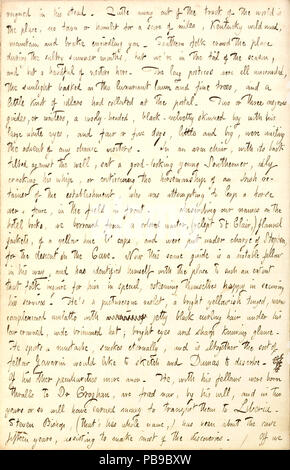 reigned in his stead. Little away out of the track of the world is
the place, no town or hamlet for a score of miles, Kentucky wild wood,
mountain and brake encircling you. Southern folk crowd the place
during the sultry summer months, but we're in the tail of the season,
and not a handful of visitors here. The long porticos were all untrodden,
the sunlight basked on the luxuriant lawn and fine trees, and a
little knot of idlers had collected at the portal. Two or three negroes
guides, or waiters, a woolly-headed, black-velvetty skinned boy with his
large white eyes, and four or five dogs, little and big, were waiting
the advent of any chance visitors. In an arm chair, with its back
tilted against the wall, sat a good-looking young Southerner, idly
cracking his whip, or criticising the horsemanship of an Irish re-
tainer of the establishment, who was attempting to a horse
over a fence, in the field in front. our names in the
hotel book, we borrowed from a colored waiter, (yclept St Clair,) flannel
jackets, of a yellow hue & caps, and were put under charge of Stephen
for the descent in the Cave. Now this same guide is a notable fellow
in his way, and has identified himself with the place to such an extent
that folk inquire for him in especial, esteeming themselves happy in securing
his services. He's a picturesque outlet, a bright yellowish tinged, warm
complexioned mulatto with jetty black curling hair under his
low crowned, wide brimmed hat, bright eyes and sharp knowing glance.
He sports a mustache, smokes eternally, and is altogether the sort of
fellow Gavarni would like to sketch and Dumas to describe.
Of his other peculiarities more anon. He, with his fellows were born
thralls to Dr Croghan, are freed now, by his will, and in two
years or so will have earned money to transport them to Liberia.
Steven Bishop, (that's his whole name,) has been about the cave
fifteen years, assisting to make most of the discoveries. Off we
alamy
PB9BXW